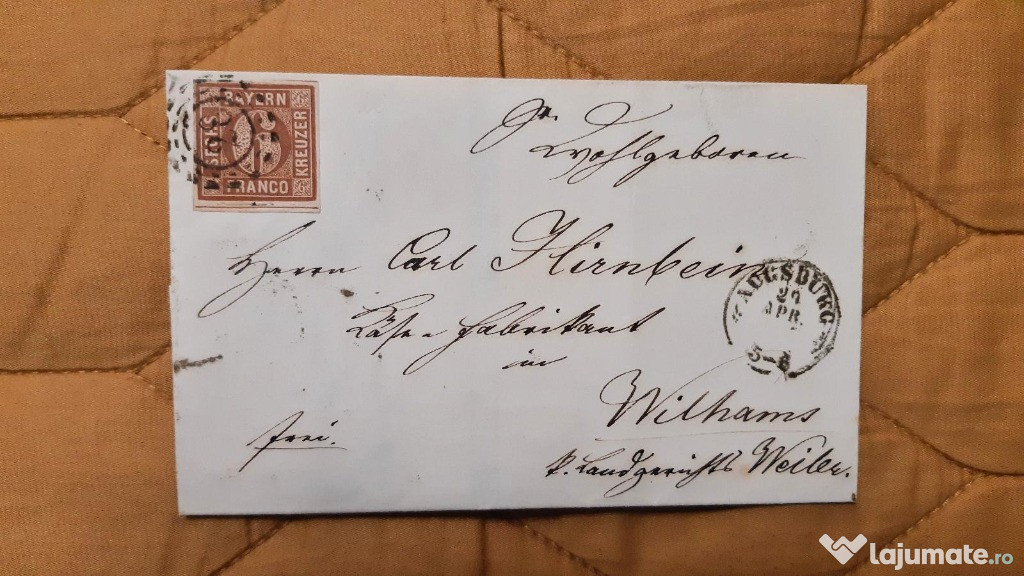 BAYERN
SECHS
KREUZER
FRANCO
6
Wohlgeboren
Herrn Carl Hirnbein
Käse-Fabrikant
in
Wilhams
frei.
k. Landgerichts Weiler.
AUGSBURG
APR.
lajumate.ro